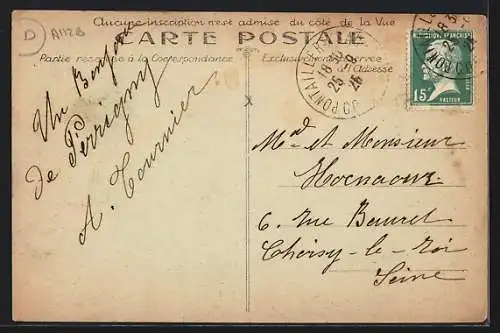 D A112B
Aucune inscription n'est admise du côté de la Vue
CARTE POSTALE
Partie réservée à la Correspondance
Exclusivement réservée
à l'Adresse
Un Bonjour
de Perrigny
A. Tournier
PONTAILLER
18
25 8
25
CO D'OR
RÉPUBLIQUE FRANÇAISE
15c
PASTEUR
Md et Monsieur
6. Rue
Choisy-le-Roi
Seine